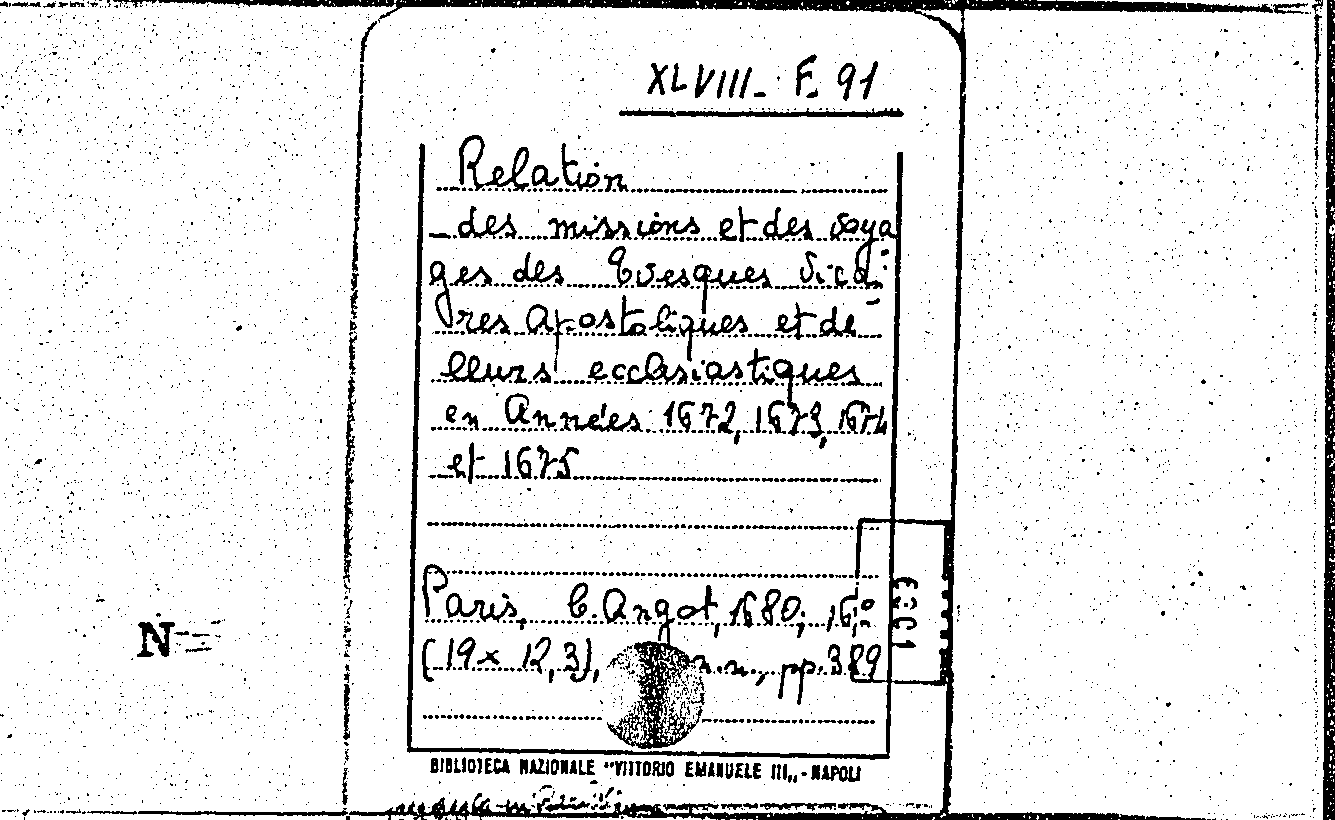 XLVIII - F. 91
Relation
des missions et des voya
ges des Evesques Vica-
res Apostoliques et de
lleurs ecclesiastiques
en Années 1672, 1673, 1674
et 1675
Paris, C. Angot, 1680; 16º
(19x 12,3), n.n., pp. 389
BIBLIOTECA NAZIONALE "VITTORIO EMANUELE III„ - NAPOLI
N